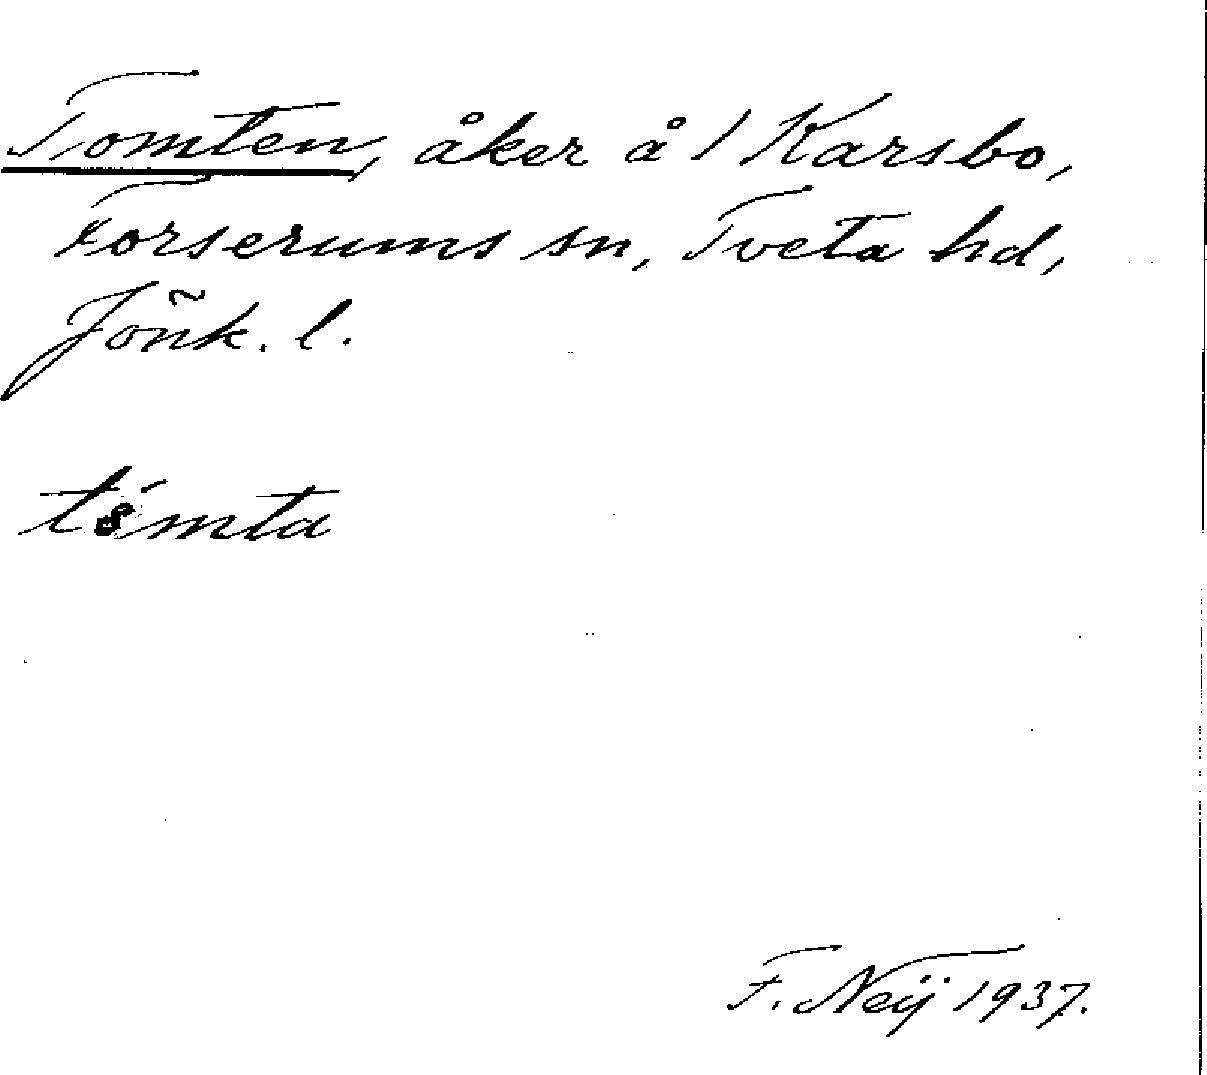 Tomten, åker å 1 Karsbo,
Forserums sn, Tveta hd,
Jönk. l.
F. Neij 1937.